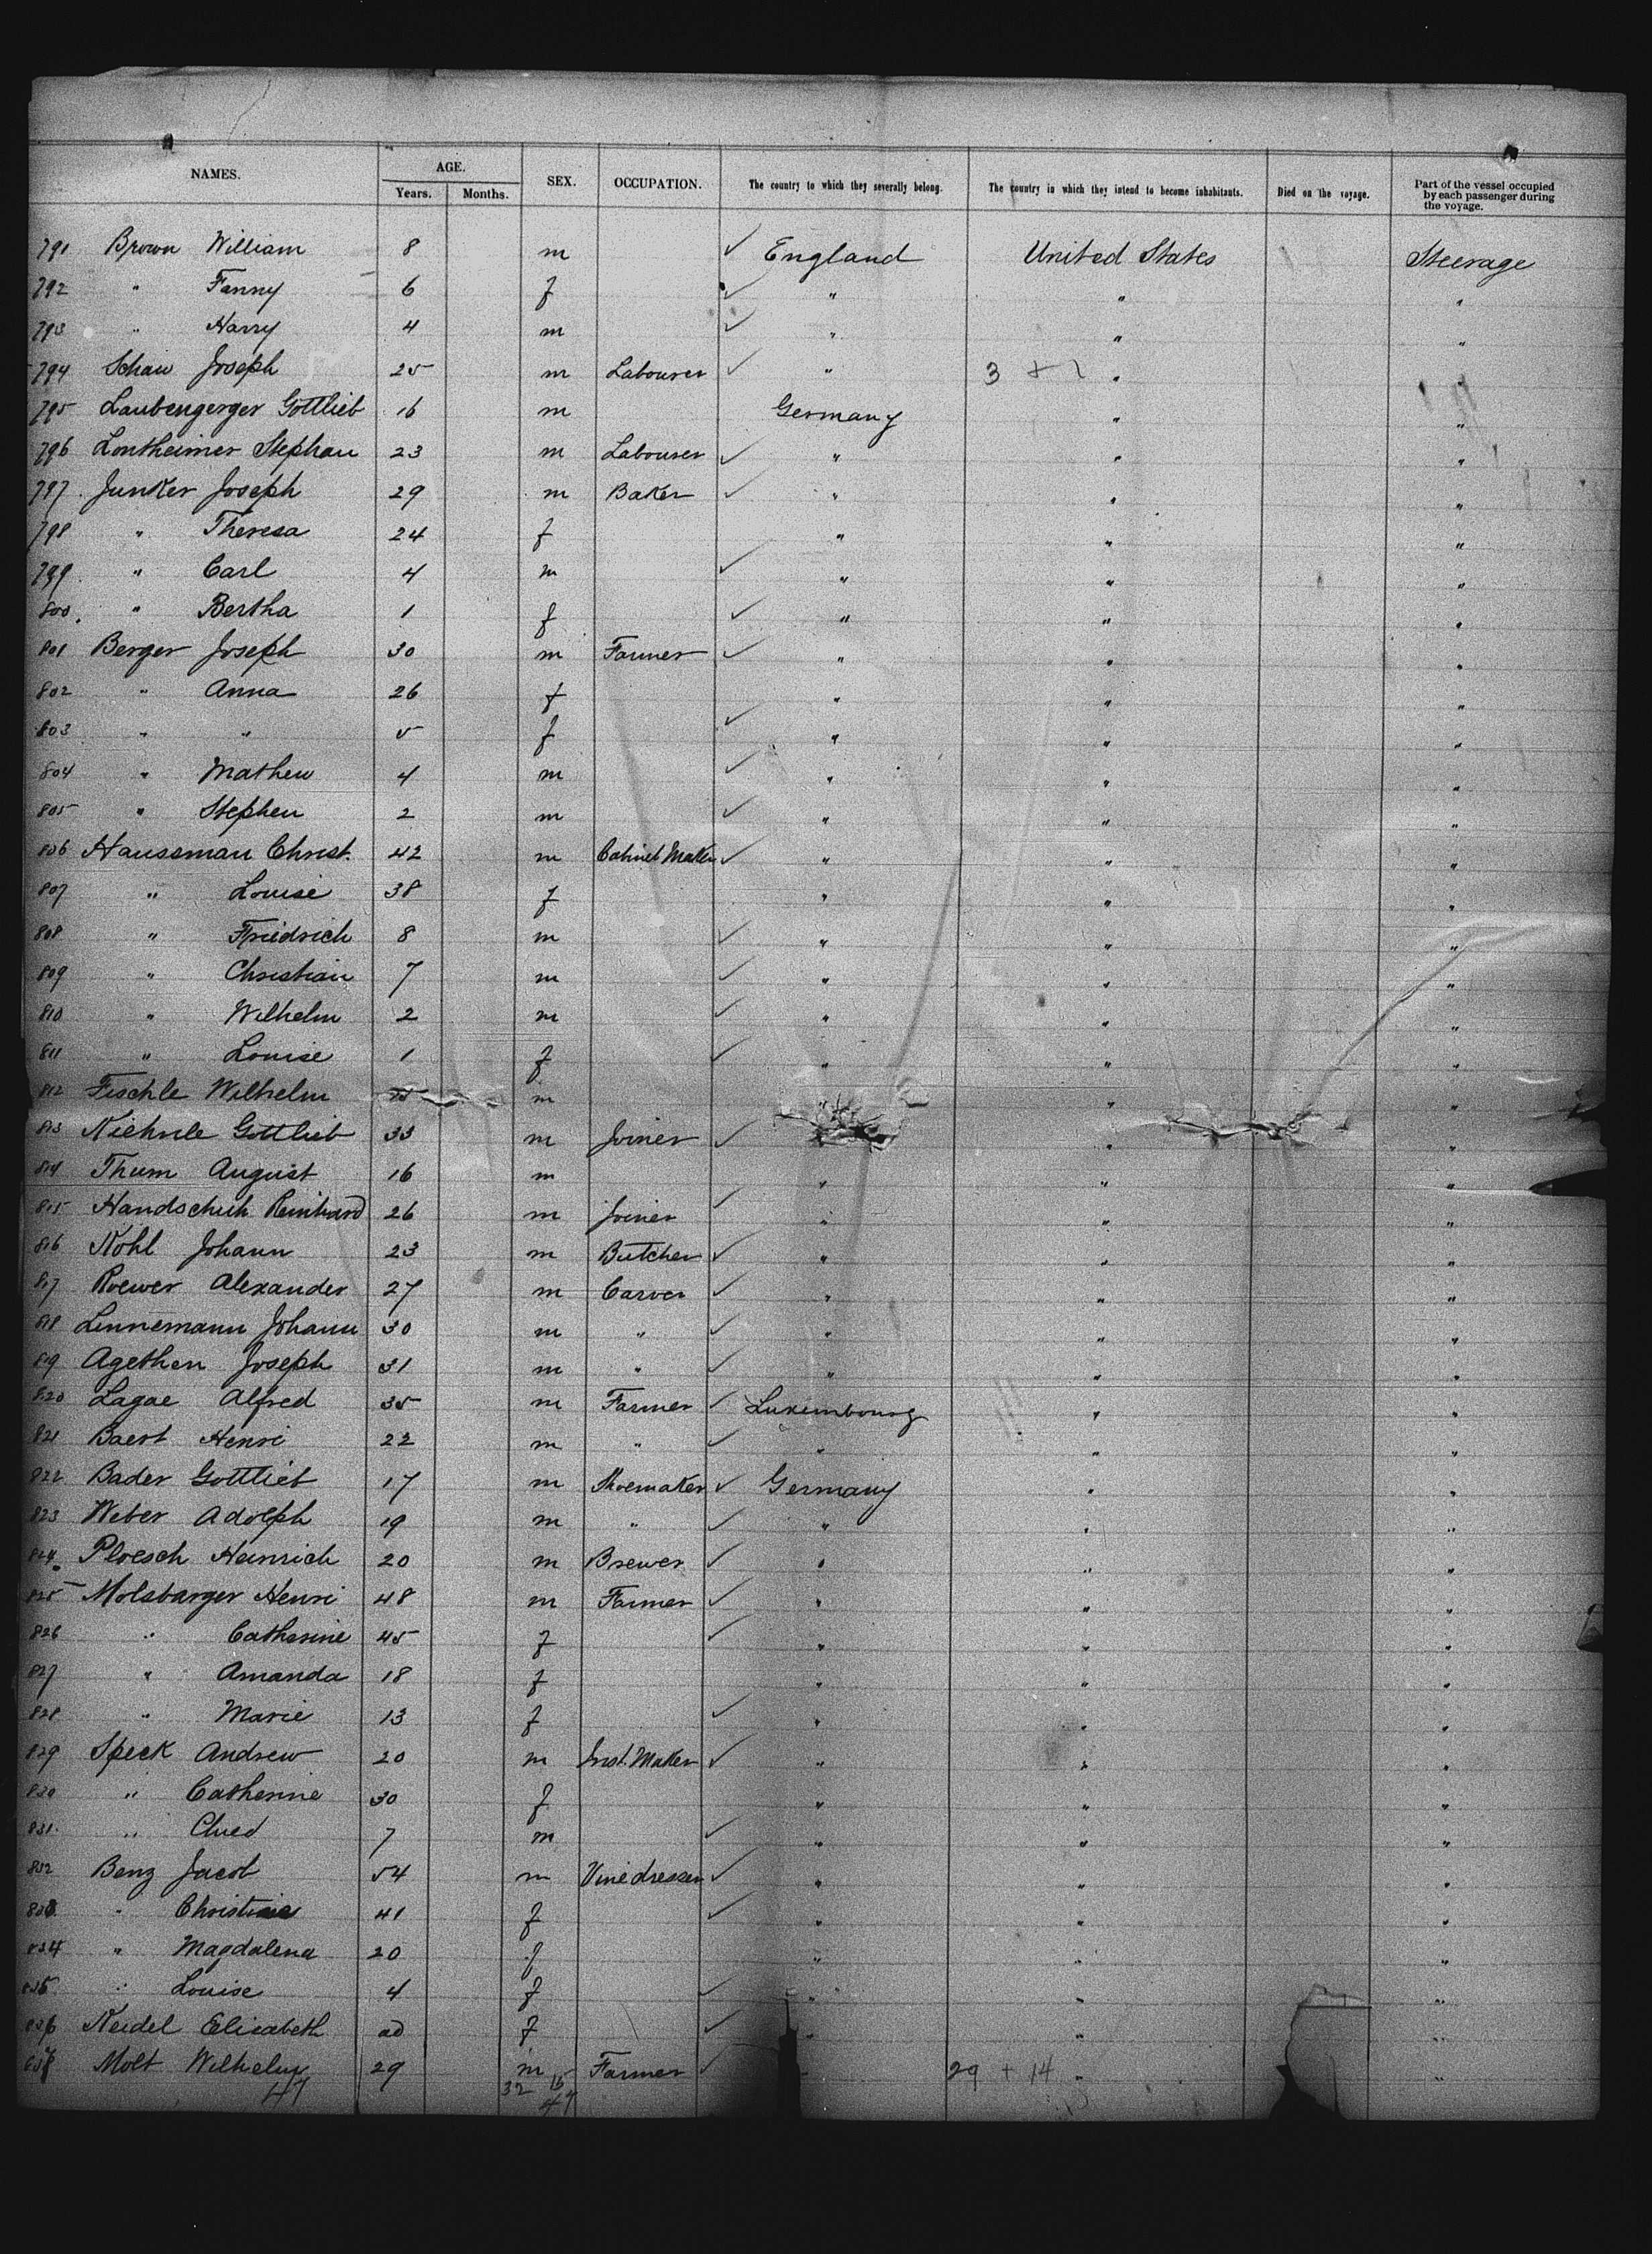 NAMES. AGE. SEX. OCCUPATION. The country to which they severally belong. The country in which they intend to become inhabitants. Died on the voyage. Part of the vessel occupied by each passenger during the voyage.
Years. Months.
791 Brown William 8 m ✓ England United States Steerage
792 " Fanny 6 f ✓ " " "
793 " Harry 4 m ✓ " " "
794 Schaw Joseph 25 m Labourer ✓ " 3 + 1 " "
795 Laubengerger Gottlieb 16 m Germany " "
796 Lontheimer Stephan 23 m Labourer ✓ " " "
797 Junker Joseph 29 m Baker ✓ " " "
798 " Theresa 24 f " " "
799 " Carl 4 m ✓ " " "
800 " Bertha 1 f ✓ " " "
801 Berger Joseph 30 m Farmer ✓ " " "
802 " Anna 26 f " " "
803 " " 5 f ✓ " " "
804 " Mathew 4 m ✓ " " "
805 " Stephen 2 m ✓ " " "
806 Haussman Christ. 42 m Cabinet Maker ✓ " " "
807 " Louise 38 f " " "
808 " Friedrich 8 m ✓ " " "
809 " Christian 7 m ✓ " " "
810 " Wilhelm 2 m ✓ " " "
811 " Louise 1 f ✓ " " "
812 Fischle Wilhelm m " " "
813 Niehule Gottlieb 33 m Joiner ✓ " "
814 Thum August 16 m " " "
815 Handschuh Reinhard 26 m Joiner ✓ " " "
816 Kohl Johann 23 m Butcher ✓ " " "
817 Roewer Alexander 27 m Carver ✓ " " "
818 Linnemann Johann 30 m " ✓ " " "
819 Agethen Joseph 31 m " ✓ " " "
820 Lagae Alfred 35 m Farmer ✓ Luxembourg " "
821 Baert Henri 22 m " ✓ " " "
822 Bader Gottlieb 17 m Shoemaker ✓ Germany " "
823 Weber Adolph 19 m " ✓ " " "
824 Ploesch Heinrich 20 m Brewer ✓ " " "
825 Molsbarger Henri 48 m Farmer ✓ " " "
826 " Catherine 45 f ✓ " " "
827 " Amanda 18 f " " "
828 " Marie 13 f ✓ " " "
829 Speck Andrew 20 m Inst. Maker ✓ " " "
830 " Catherine 30 f " " "
831 " Chied 7 m ✓ " " "
832 Benz Jacob 54 m Vinedresser ✓ " " "
833 " Christine 41 f ✓ " " "
834 " Magdalena 20 f " " "
835 " Louise 4 f ✓ " " "
836 Neidel Elisabeth ad f ✓ " " "
837 Molt Wilhelm 29 m Farmer ✓ " 29 + 14 " "
47 32 15
47